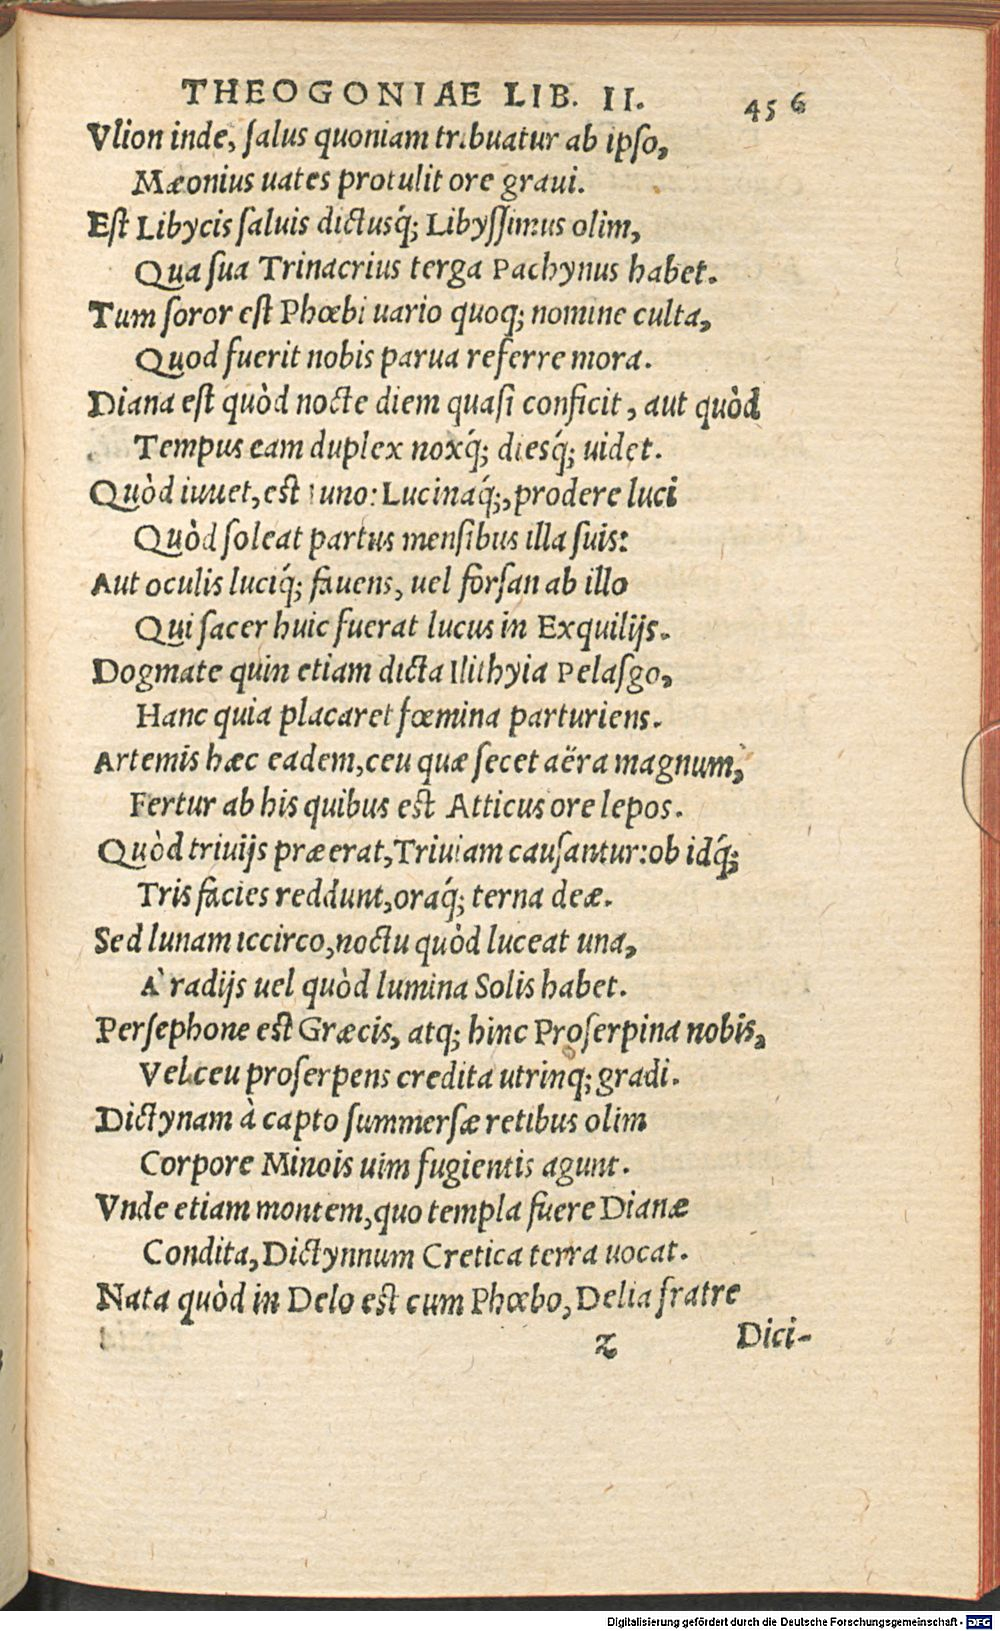 THEOGONIAE LIB. II. 456
Vlion inde, ſalus quoniam tribuatur ab ipſo,
Mæonius uates protulit ore graui.
Eſt Libycis ſaluis dictusq́; Libyſſinus olim,
Qua ſua Trinacrius terga Pachynus habet.
Tum ſoror eſt Phœbi uario quoq; nomine culta,
Quod fuerit nobis parua referre mora.
Diana eſt quòd nocte diem quaſi conficit, aut quòd
Tempus eam duplex noxq́; diesq́; uidet.
Quòd iuuet, eſt Iuno: Lucinaq́;, prodere luci
Quòd ſoleat partus menſibus illa ſuis:
Aut oculis luciq́; fauens, uel forſan ab illo
Qui ſacer huic fuerat lucus in Exquilijs.
Dogmate quin etiam dicta Ilithyia Pelaſgo,
Hanc quia placaret fœmina parturiens.
Artemis hæc eadem, ceu quæ ſecet aëra magnum,
Fertur ab his quibus eſt Atticus ore lepos.
Quòd triuijs præerat, Triuiam cauſantur: ob idq́;
Tris facies reddunt, oraq́; terna deæ.
Sed lunam iccirco, noctu quòd luceat una,
A` radijs uel quòd lumina Solis habet.
Perſephone eſt Græcis, atq; hinc Proſerpina nobis,
Vel ceu proſerpens credita utrinq; gradi.
Dictynam à capto ſummerſæ retibus olim
Corpore Minois uim fugientis agunt.
Vnde etiam montem, quo templa fuere Dianæ
Condita, Dictynnum Cretica terra uocat.
Nata quòd in Delo eſt cum Phœbo, Delia fratre
z Dici-
Digitalisierung gefördert durch die Deutsche Forschungsgemeinschaft - DFG